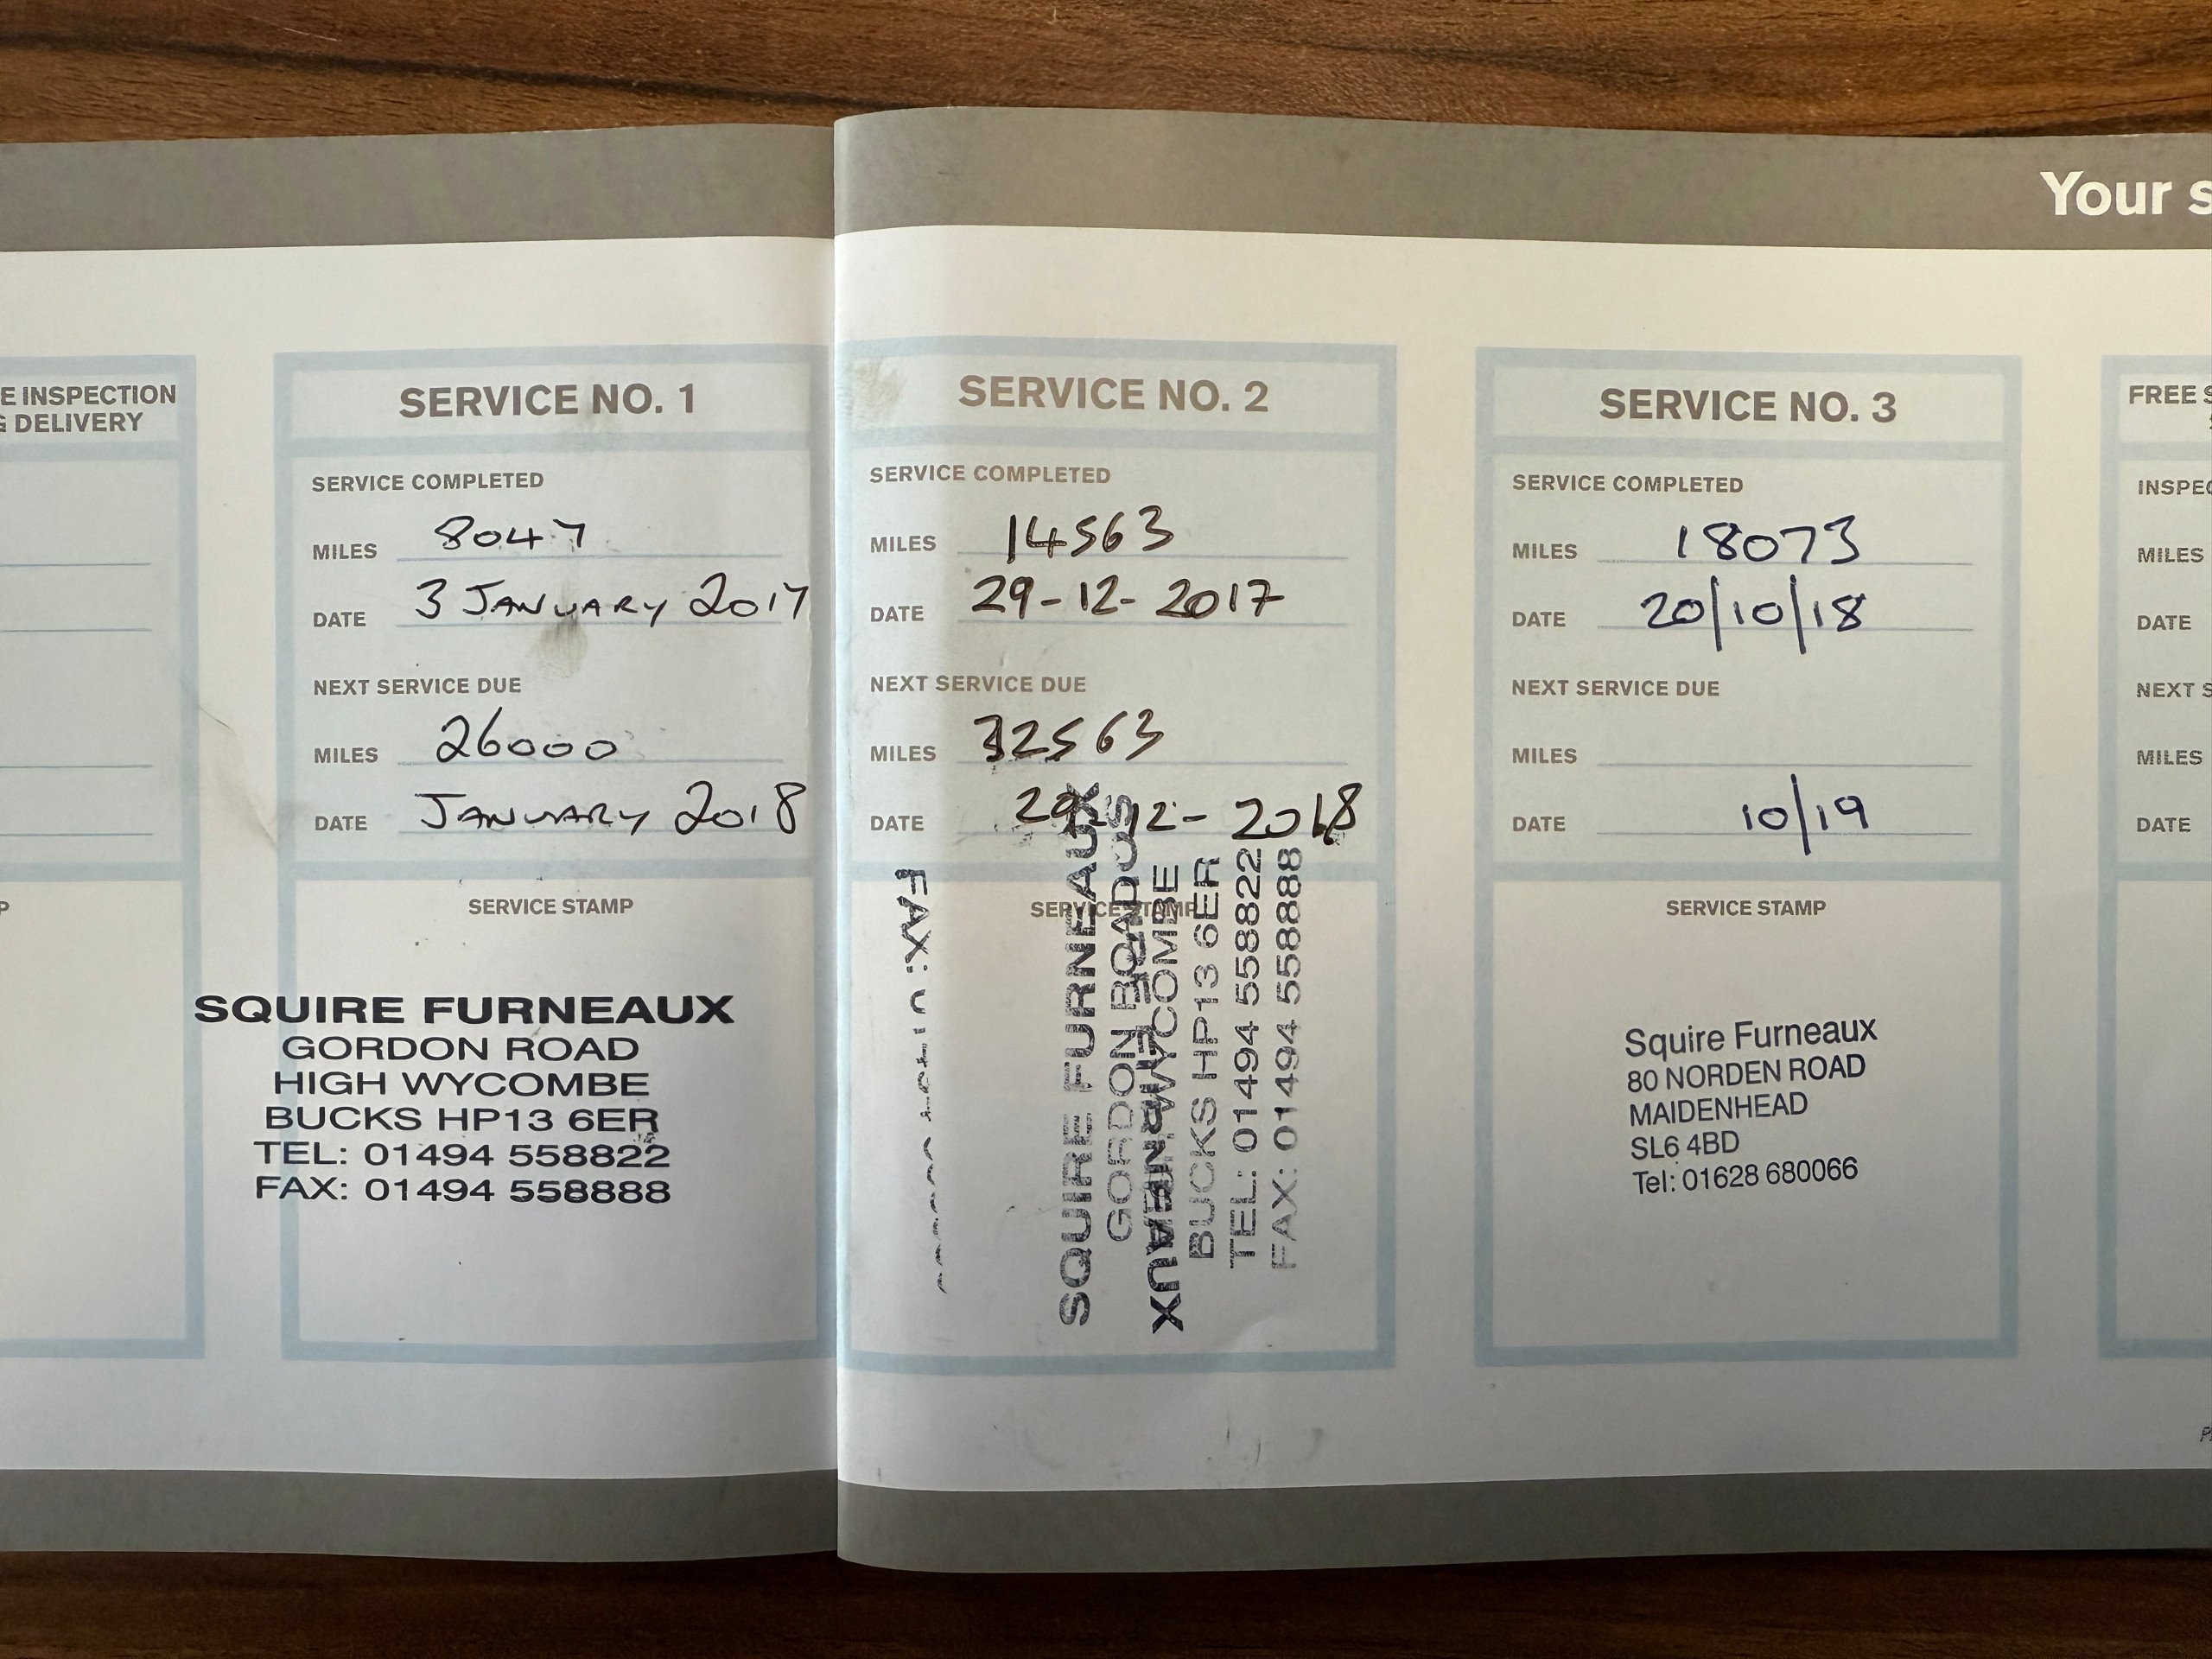 Your s
E INSPECTION
G DELIVERY
P
SERVICE NO. 1
SERVICE COMPLETED
MILES 8047
DATE 3 JANUARY 2017
NEXT SERVICE DUE
MILES 26000
DATE JANUARY 2018
SERVICE STAMP
SQUIRE FURNEAUX
GORDON ROAD
HIGH WYCOMBE
BUCKS HP13 6ER
TEL: 01494 558822
FAX: 01494 558888
SERVICE NO. 2
SERVICE COMPLETED
MILES 14563
DATE 29-12-2017
NEXT SERVICE DUE
MILES 32563
DATE 29-12-2018
SERVICE STAMP
FAX:
SQUIRE FURNEAUX
GORDON ROAD
WYCOMBE
BUCKS HP13 6ER
TEL: 01494 558822
FAX: 01494 558888
SERVICE NO. 3
SERVICE COMPLETED
MILES 18073
DATE 20/10/18
NEXT SERVICE DUE
MILES
DATE 10/19
SERVICE STAMP
Squire Furneaux
80 NORDEN ROAD
MAIDENHEAD
SL6 4BD
Tel: 01628 680066
FREE S
INSPEC
MILES
DATE
NEXT S
MILES
DATE